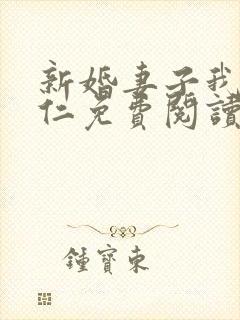 新婚妻子我
仁免費閱讀
鍾寶東